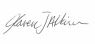 Karen J Atkinson